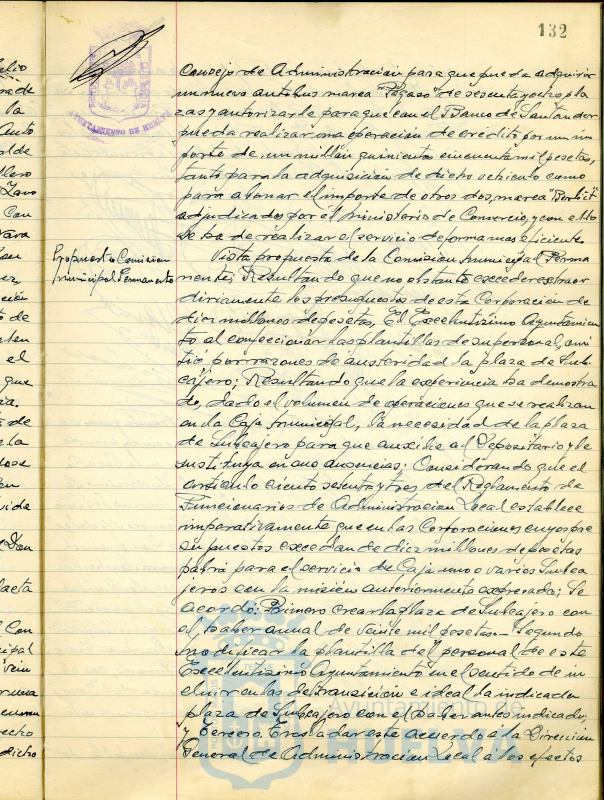 132
AYUNTAMIENTO DE HUELVA
Consejo de Administracion para que pueda adquirir
un nuevo autobus marca "Pegaso" de sesenta y cuatro pla
zas y autorizarle para que con el Banco de Santander
pueda realizar una operación de crédito por un im
porte de un millón quinientas cincuenta mil pesetas,
tanto para la adquisición de dicho vehiculo como
para abonar el importe de otros dos, marca "Berliet"
adjudicados por el Ministerio de Comercio, y con ello
se ha de realizar el servicio de forma mas eficiente.
Propuesta Comision
Municipal Permanente
Vista propuesta de la Comision Municipal Perma
nente; Resultando que no obstante exceder extraor
dinariamente los presupuestos de esta Corporacion de
diez millones de pesetas, El Excelentísimo Ayuntamien
to al confeccionar las plantillas de su personal, omi
tió por razones de austeridad la plaza de Sub-
cajero; Resultando que la experiencia ha demostra
do, dado el volumen de operaciones que se realizan
en la Caja Municipal, la necesidad de la plaza
de Subcajero para que auxilie al Depositario y le
sustituya en sus ausencias: Considerando que el
articulo ciento sesenta y tres del Reglamento de
Funcionarios de Administracion Local establece
imperativamente que en las Corporaciones cuyos pre
supuestos excedan de diez millones de pesetas
habrá para el servicio de Caja uno o varios Subca
jeros con la misión anteriormente expresada; Se
acordó: Primero crear la plaza de Subcajero con
el haber anual de veinte mil pesetas.- Segundo
Modificar la plantilla del personal de este
Excelentísimo Ayuntamiento en el sentido de in
cluir en las de transición e ideal la indicada
plaza de Subcajero con el haber antes indicado,
y Tercero Trasladar este acuerdo a la Direccion
General de Administracion Local a los efectos
Ayuntamiento de
HUELVA